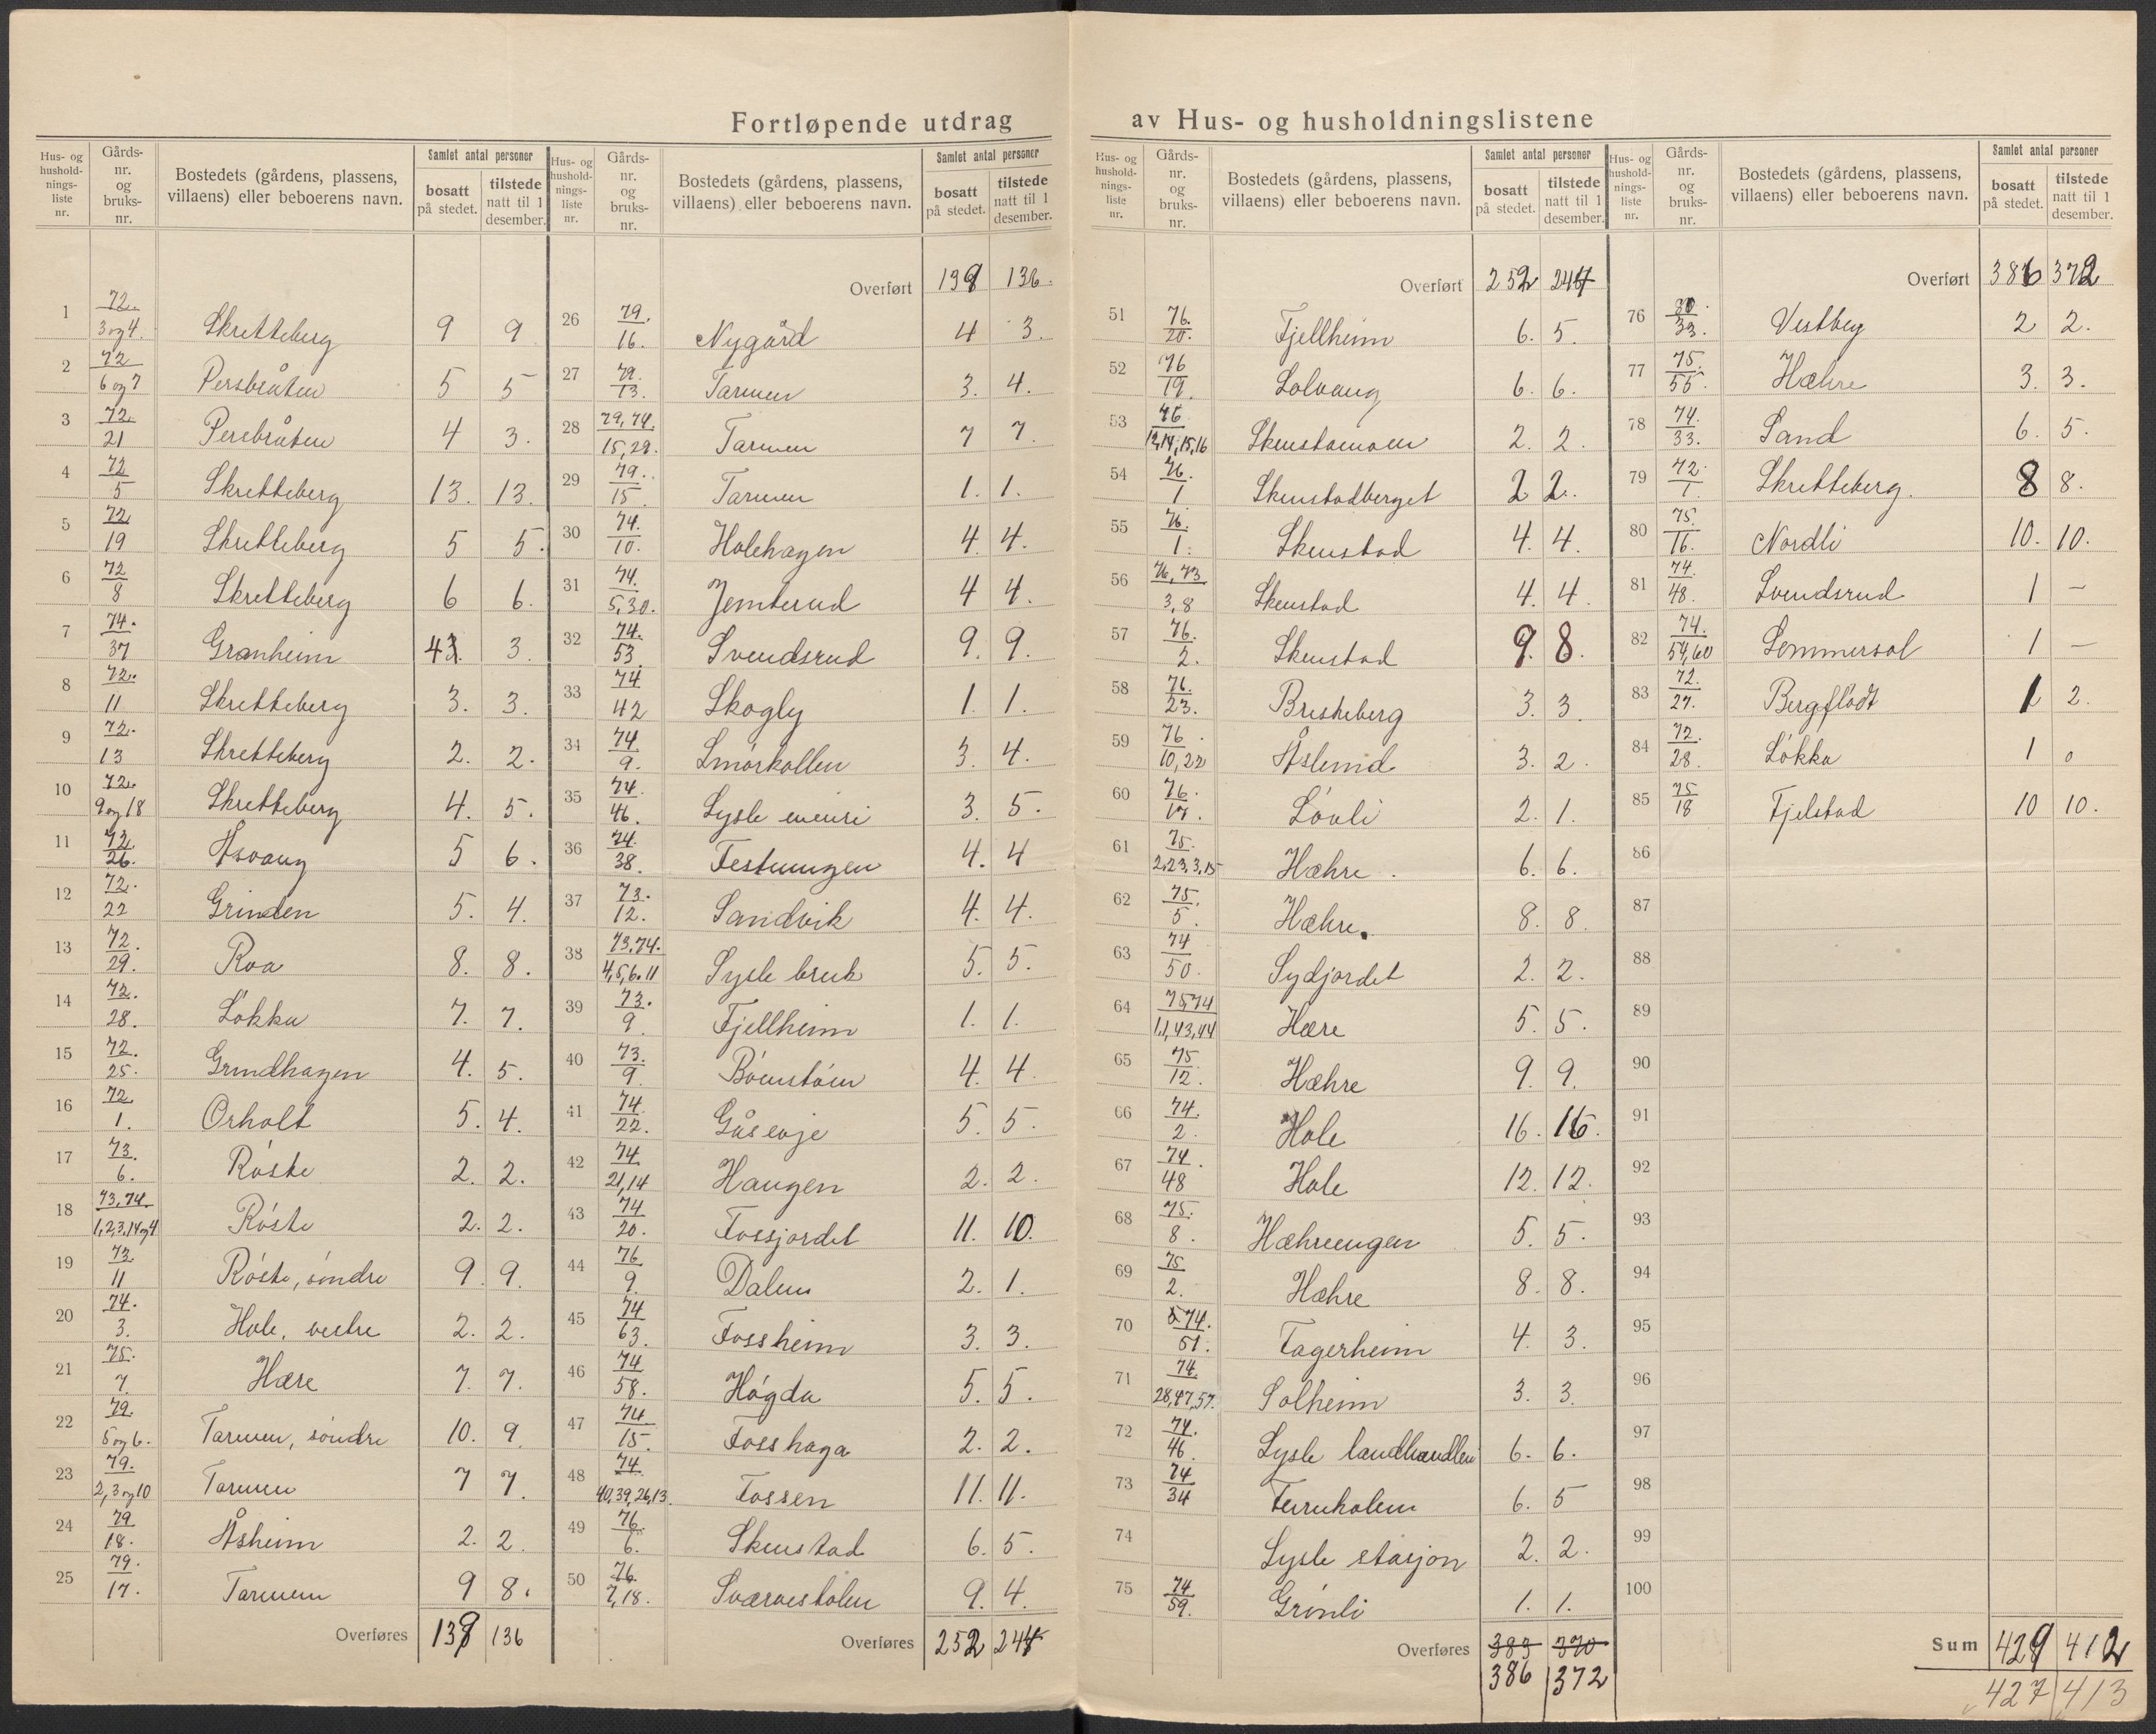 Fortløpende utdrag av Hus- og husholdningslistene
Hus- og hushold-nings-liste nr. Gårds-nr. og bruks-nr. Bostedets (gårdens, plassens, villaens) eller beboerens navn. Samlet antal personer bosatt på stedet. tilstede natt til 1 desember.
1 72. 3 og 4. Skretteberg 9 9
2 72 6 og 7 Persbråten 5 5
3 72. 21 Persbråten 4 3.
4 72 5 Skretteberg 13. 13.
5 72 19 Skretteberg 5 5.
6 72 8 Skretteberg 6 6.
7 74. 37 Granheim 4 3.
8 72. 11 Skretteberg 3. 3.
9 72. 13 Skretteberg 2. 2.
10 72. 9 og 18 Skretteberg 4. 5.
11 72. 26. Åsvang 5 6.
12 72. 22 Grinden 5. 4.
13 72. 29. Roa 8. 8.
14 72. 28. Løkka 7. 7.
15 72. 25. Grindhagen 4. 5.
16 72. 1. Orholt 5. 4.
17 73. 6. Røste 2. 2.
18 73, 74. 1,2,3,14 og 4 Røste 2. 2.
19 73. 11 Røste, søndre 9. 9.
20 74. 3. Hole, vestre 2. 2.
21 75. 7. Hære 7. 7.
22 79. 5 og 6. Tarmen, søndre 10. 9.
23 79. 2, 3 og 10 Tarmen 7 7.
24 79 18. Åsheim 2. 2.
25 79. 17. Tarmen 9 8.
Overføres 138 136
Hus- og hushold-nings-liste nr. Gårds-nr. og bruks-nr. Bostedets (gårdens, plassens, villaens) eller beboerens navn. Samlet antal personer bosatt på stedet. tilstede natt til 1 desember.
Overført 138 136.
26 79. 16. Nygård 4 3.
27 79. 13. Tarmen 3. 4.
28 79, 74. 15, 29. Tarmen 7 7.
29 79. 15 Tarmen 1. 1.
30 74. 10. Holehagen 4. 4.
31 74. 5, 30. Jemterud 4 4.
32 74. 53. Svendsrud 9. 9.
33 74 42 Skogly 1. 1.
34 74. 9. Smørkollen 3. 4.
35 74. 46. Sysle 3. 5.
36 74. 38. Festningen 4. 4
37 73. 12. Sandvik 4. 4.
38 73. 74. 4,5,6.11 Sysle bruk 5. 5.
39 73. 9. Fjellheim 1. 1.
40 73. 9. 4. 4.
41 74. 22. Gåseøje 5. 5.
42 74. 21,14 Haugen 2. 2.
43 74 20. Fossjordet 11. 10.
44 76 9. Dalen 2. 1.
45 74 63. Fossheim 3. 3.
46 74 58. Høgda 5. 5.
47 74 15. Fosshaga 2. 2.
48 74. 40,39,26,13. Fossen 11. 11.
49 76. 6. Skenstad 6. 5.
50 76. 7, 18. Sværvestolen 9. 4.
Overføres 252 244
Hus- og hushold-nings-liste nr. Gårds-nr. og bruks-nr. Bostedets (gårdens, plassens, villaens) eller beboerens navn. Samlet antal personer bosatt på stedet. tilstede natt til 1 desember.
Overført 252 244
51 76. 20. Fjellheim 6. 5.
52 76 19. Solvang 6. 6.
53 76 13,14,15,16 Skenstamoen 2. 2.
54 76. 1 Skenstadberget 2 2.
55 76. 1. Skenstad 4. 4.
56 76, 73 3, 8 Skenstad 4. 4.
57 76. 2. Skenstad 9. 8.
58 76. 23. Breskeberg 3. 3.
59 76. 10, 22 Åslund 3. 2.
60 76. 17. Lövli 2. 1.
61 75. 2,23,3,15 Hæhre. 6. 6.
62 75. 5. Hæhre. 8. 8.
63 74 50. Sydjordet 2. 2.
64 75,74 1,1,43,44 Hære 5. 5.
65 75. 12. Hæhre 9. 9.
66 74. 2. Hole 16. 16.
67 74. 48 Hole 12. 12.
68 75. 8. Hæhreengen 5. 5.
69 75 2. Hæhre 8. 8.
70 74. 51. Fagerheim 4. 3.
71 74. 28,47,57. Solheim 3. 3.
72 74. 46. Sysle landhandleri 6. 6.
73 74 34 Furuholem 6. 5
74 Sysle stasjon 2. 2.
75 74 59. Grønli 1. 1.
Overføres 383 370
386 372
Hus- og hushold-nings-liste nr. Gårds-nr. og bruks-nr. Bostedets (gårdens, plassens, villaens) eller beboerens navn. Samlet antal personer bosatt på stedet. tilstede natt til 1 desember.
Overført 386 372
76 80 33. Vestby 2 2.
77 75. 55. Hæhre 3. 3.
78 74. 33. Sand 6. 5.
79 72. 1. Skretteberg. 8 8.
80 75. 16. Nordli 10. 10.
81 74. 48. Svendsrud 1 –
82 74. 54,60 Sommersol 1 –
83 72. 27. Bergflødt 1 2.
84 72. 28. Løkka 1 0
85 75 18 Fjelstad 10 10.
86
87
88
89
90
91
92
93
94
95
96
97
98
99
100
Sum 429 412
427 413